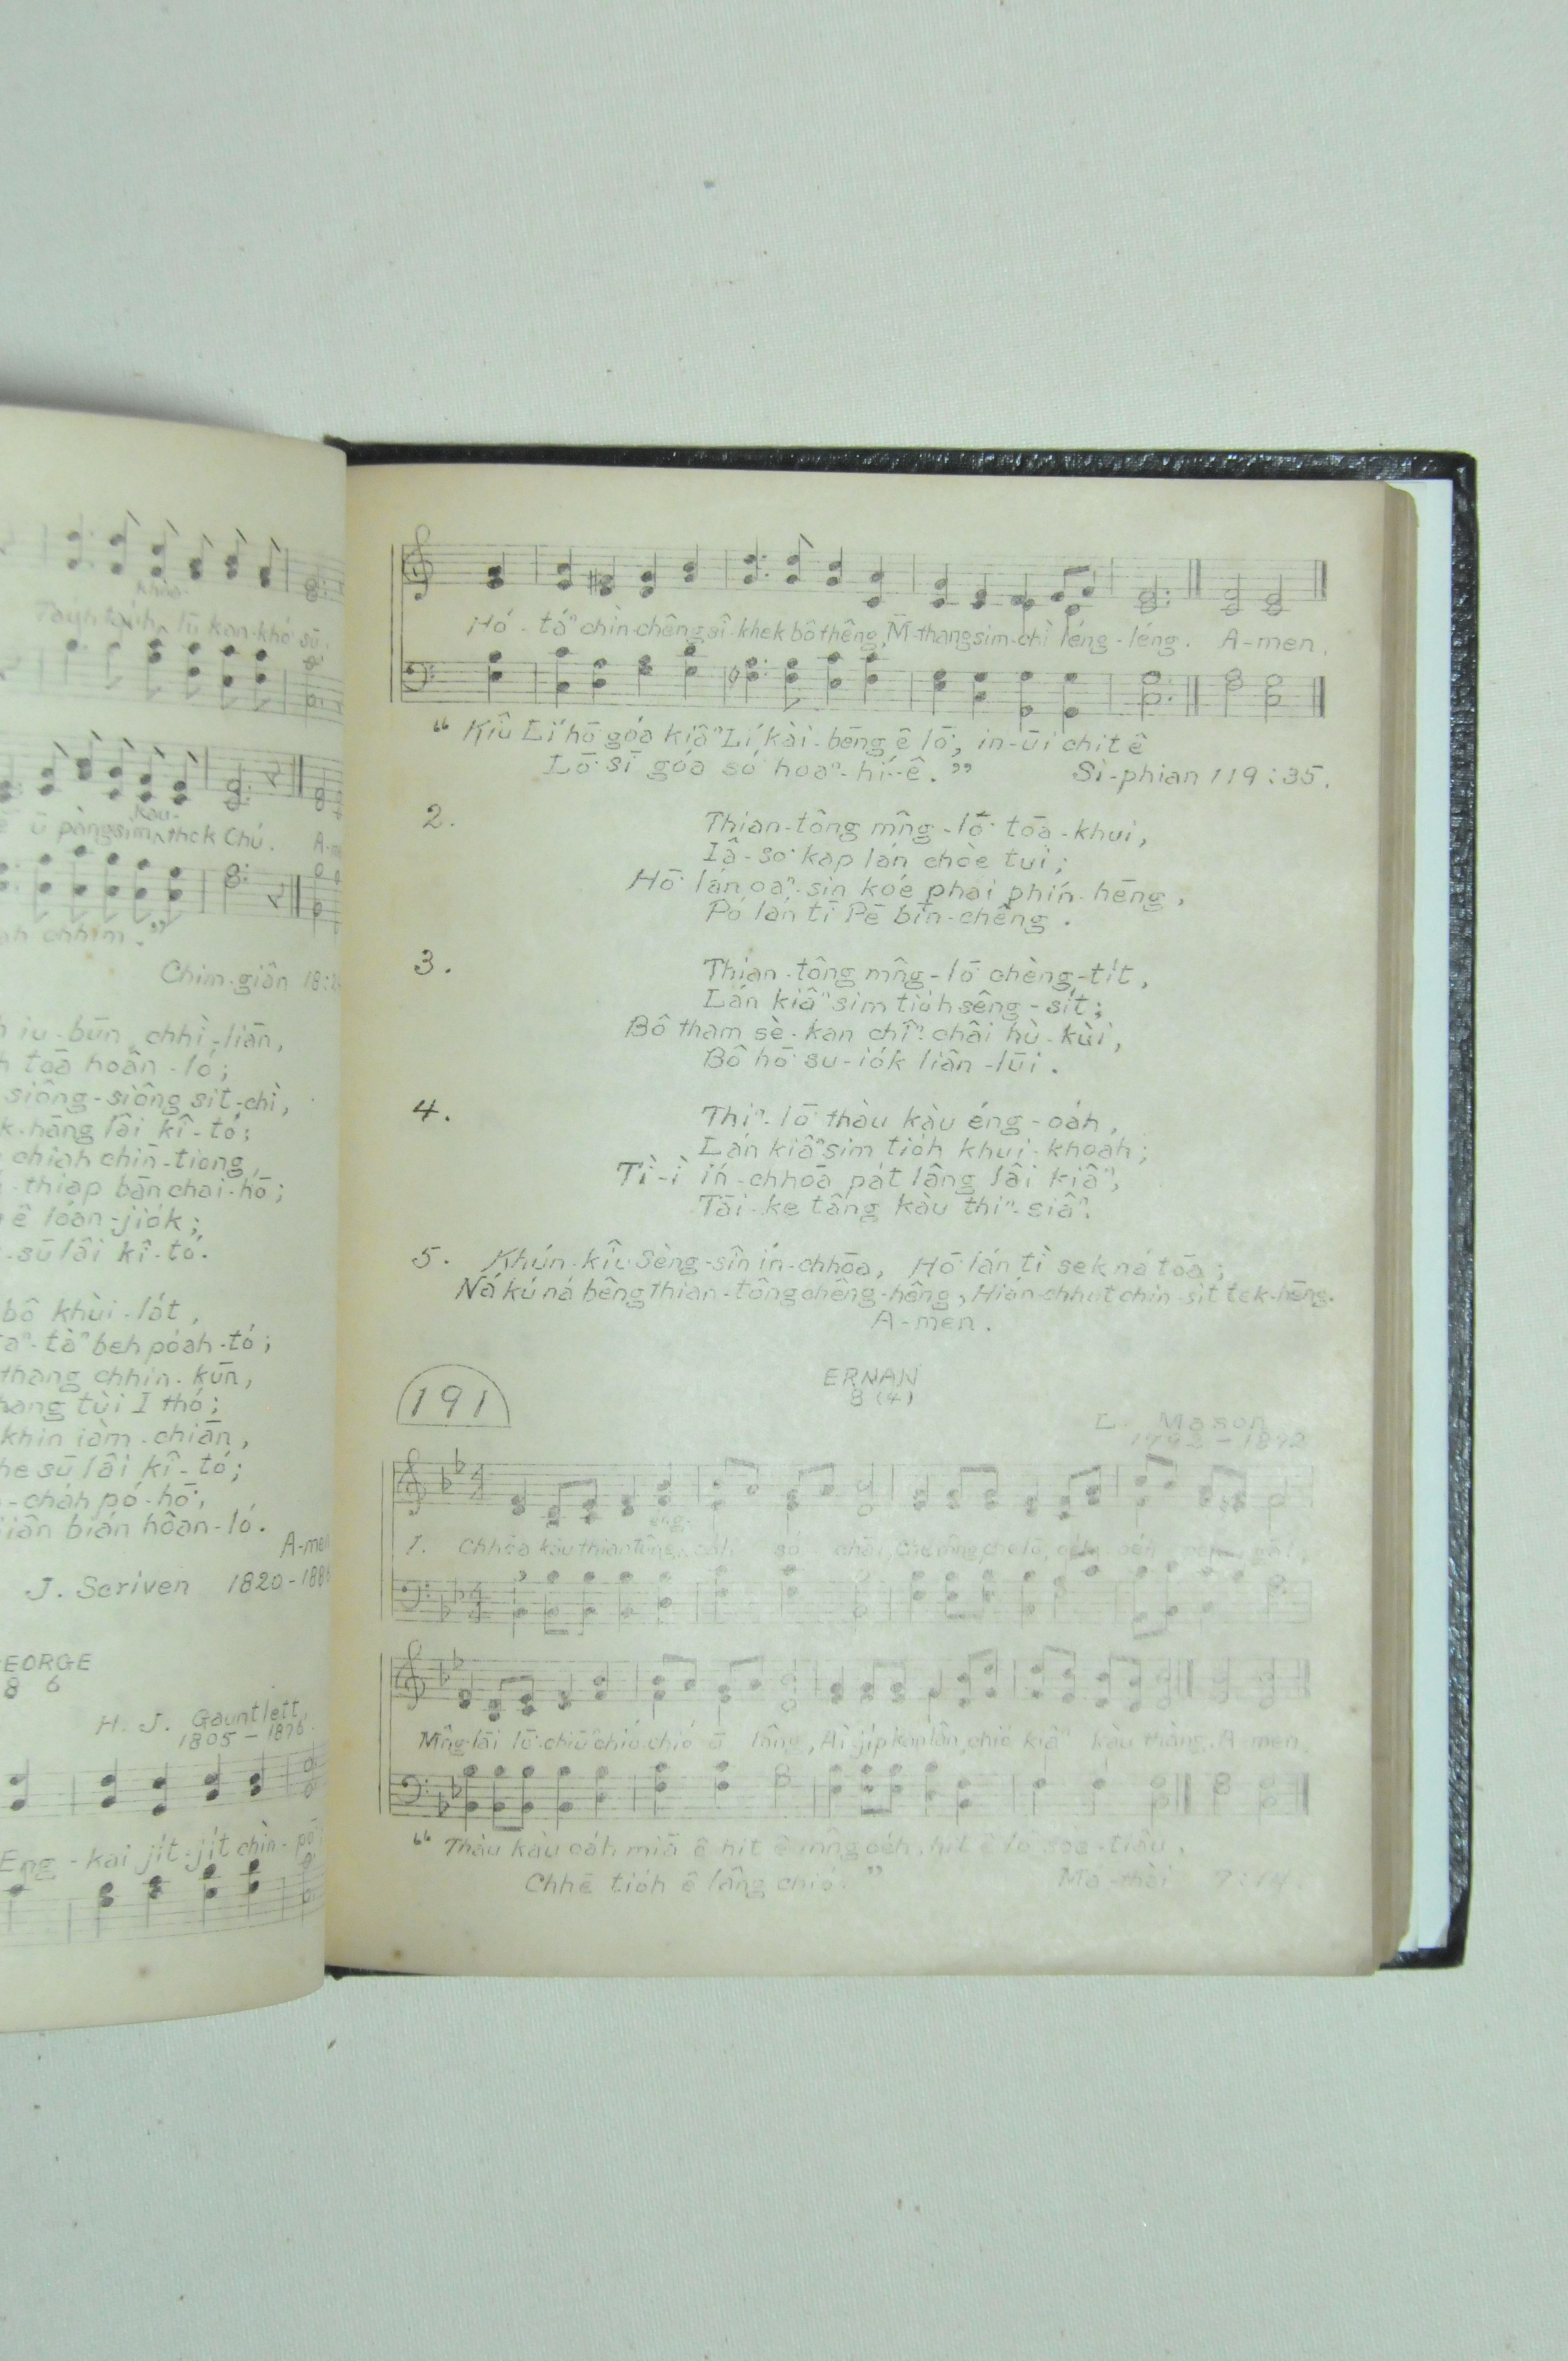 Khòa-
Tauh tauh, lū kan-khó sū.
Kàu-
ē ū pàng sim, thek Chú. A-m
ah chhim.”
Chim-giân 18:2
iu-būn, chhì-liān,
tōa hoân-ló;
siông-siông sit-chì,
k-hāng lâi kî-tó;
chiah chin-tiong,
-thiap bān chai-hō;
ê lóan-jiók;
-sū lâi kî-tó.
bô khùi-lát,
taⁿ-tàⁿ beh póah-tó;
thang chhin-kūn,
hang tùi I thó;
khin iàm-chiān,
he sū lâi kî-tó;
-cháh pó-hō͘,
iân bián hôan-ló.
A-men
J. Scriven 1820-1886
EORGE
8 6
H. J. Gauntlett,
1805-1876.
Eng-kai ji̍t-ji̍t chìn-pō͘
Hó-táⁿ chìn-chêng sî-khek bô thêng, M̄-thang sim-chì léng-léng. A-men.
“Kiû Lí hō͘ góa kiâⁿ Lí kài-bēng ê lō͘, in-ūi chit ê
Lō͘ sī góa só͘ hoaⁿ-hí-ê.” Si-phian 119:35.
2. Thian-tông mn̂g-lō͘ tōa-khui,
Iâ-so͘ kap lán chòe tui;
Hō͘ lán oaⁿ-sin kóe phai phín-hēng,
Pó lán tī Pē bīn-chêng.
3. Thian-tông mn̂g-lō͘ chèng-ti̍t,
Lán kiâⁿ sim tio̍h sêng-si̍t;
Bô tham sè-kan chîⁿ-châi hù-kùi,
Bô hō͘ su-io̍k liân-lūi.
4. Thiⁿ-lō͘ thàu kàu éng-oa̍h,
Lán kiâⁿ sim tio̍h khui-khoah;
Tì-ì ín-chhōa pa̍t lâng lâi kiâⁿ,
Tāi-ke tâng kàu thiⁿ-siâⁿ.
5. Khún-kiû Sèng-sîn ín-chhōa, Hō͘ lán tì sek ná tōa;
Ná kú ná bêng Thian-tông chêng-hêng, Hián-chhut chin-si̍t tek-hēng.
A-men.
191
ERNAN
8 (4)
L. Mason
1792-1892
1. Chhōa kàu thian tông
Mn̂g-lāi lō͘-chiūⁿ chió-chió ū lâng, Ài-ji̍p kan-lân, chió kiâⁿ kàu thàng. A-men.
“Thàu kàu oa̍h miā ê hit ê mn̂g oe̍h, hit ê lō͘ soe-tiâu,
Chhē tio̍h ê lâng chió.” Má-thài 7:14.